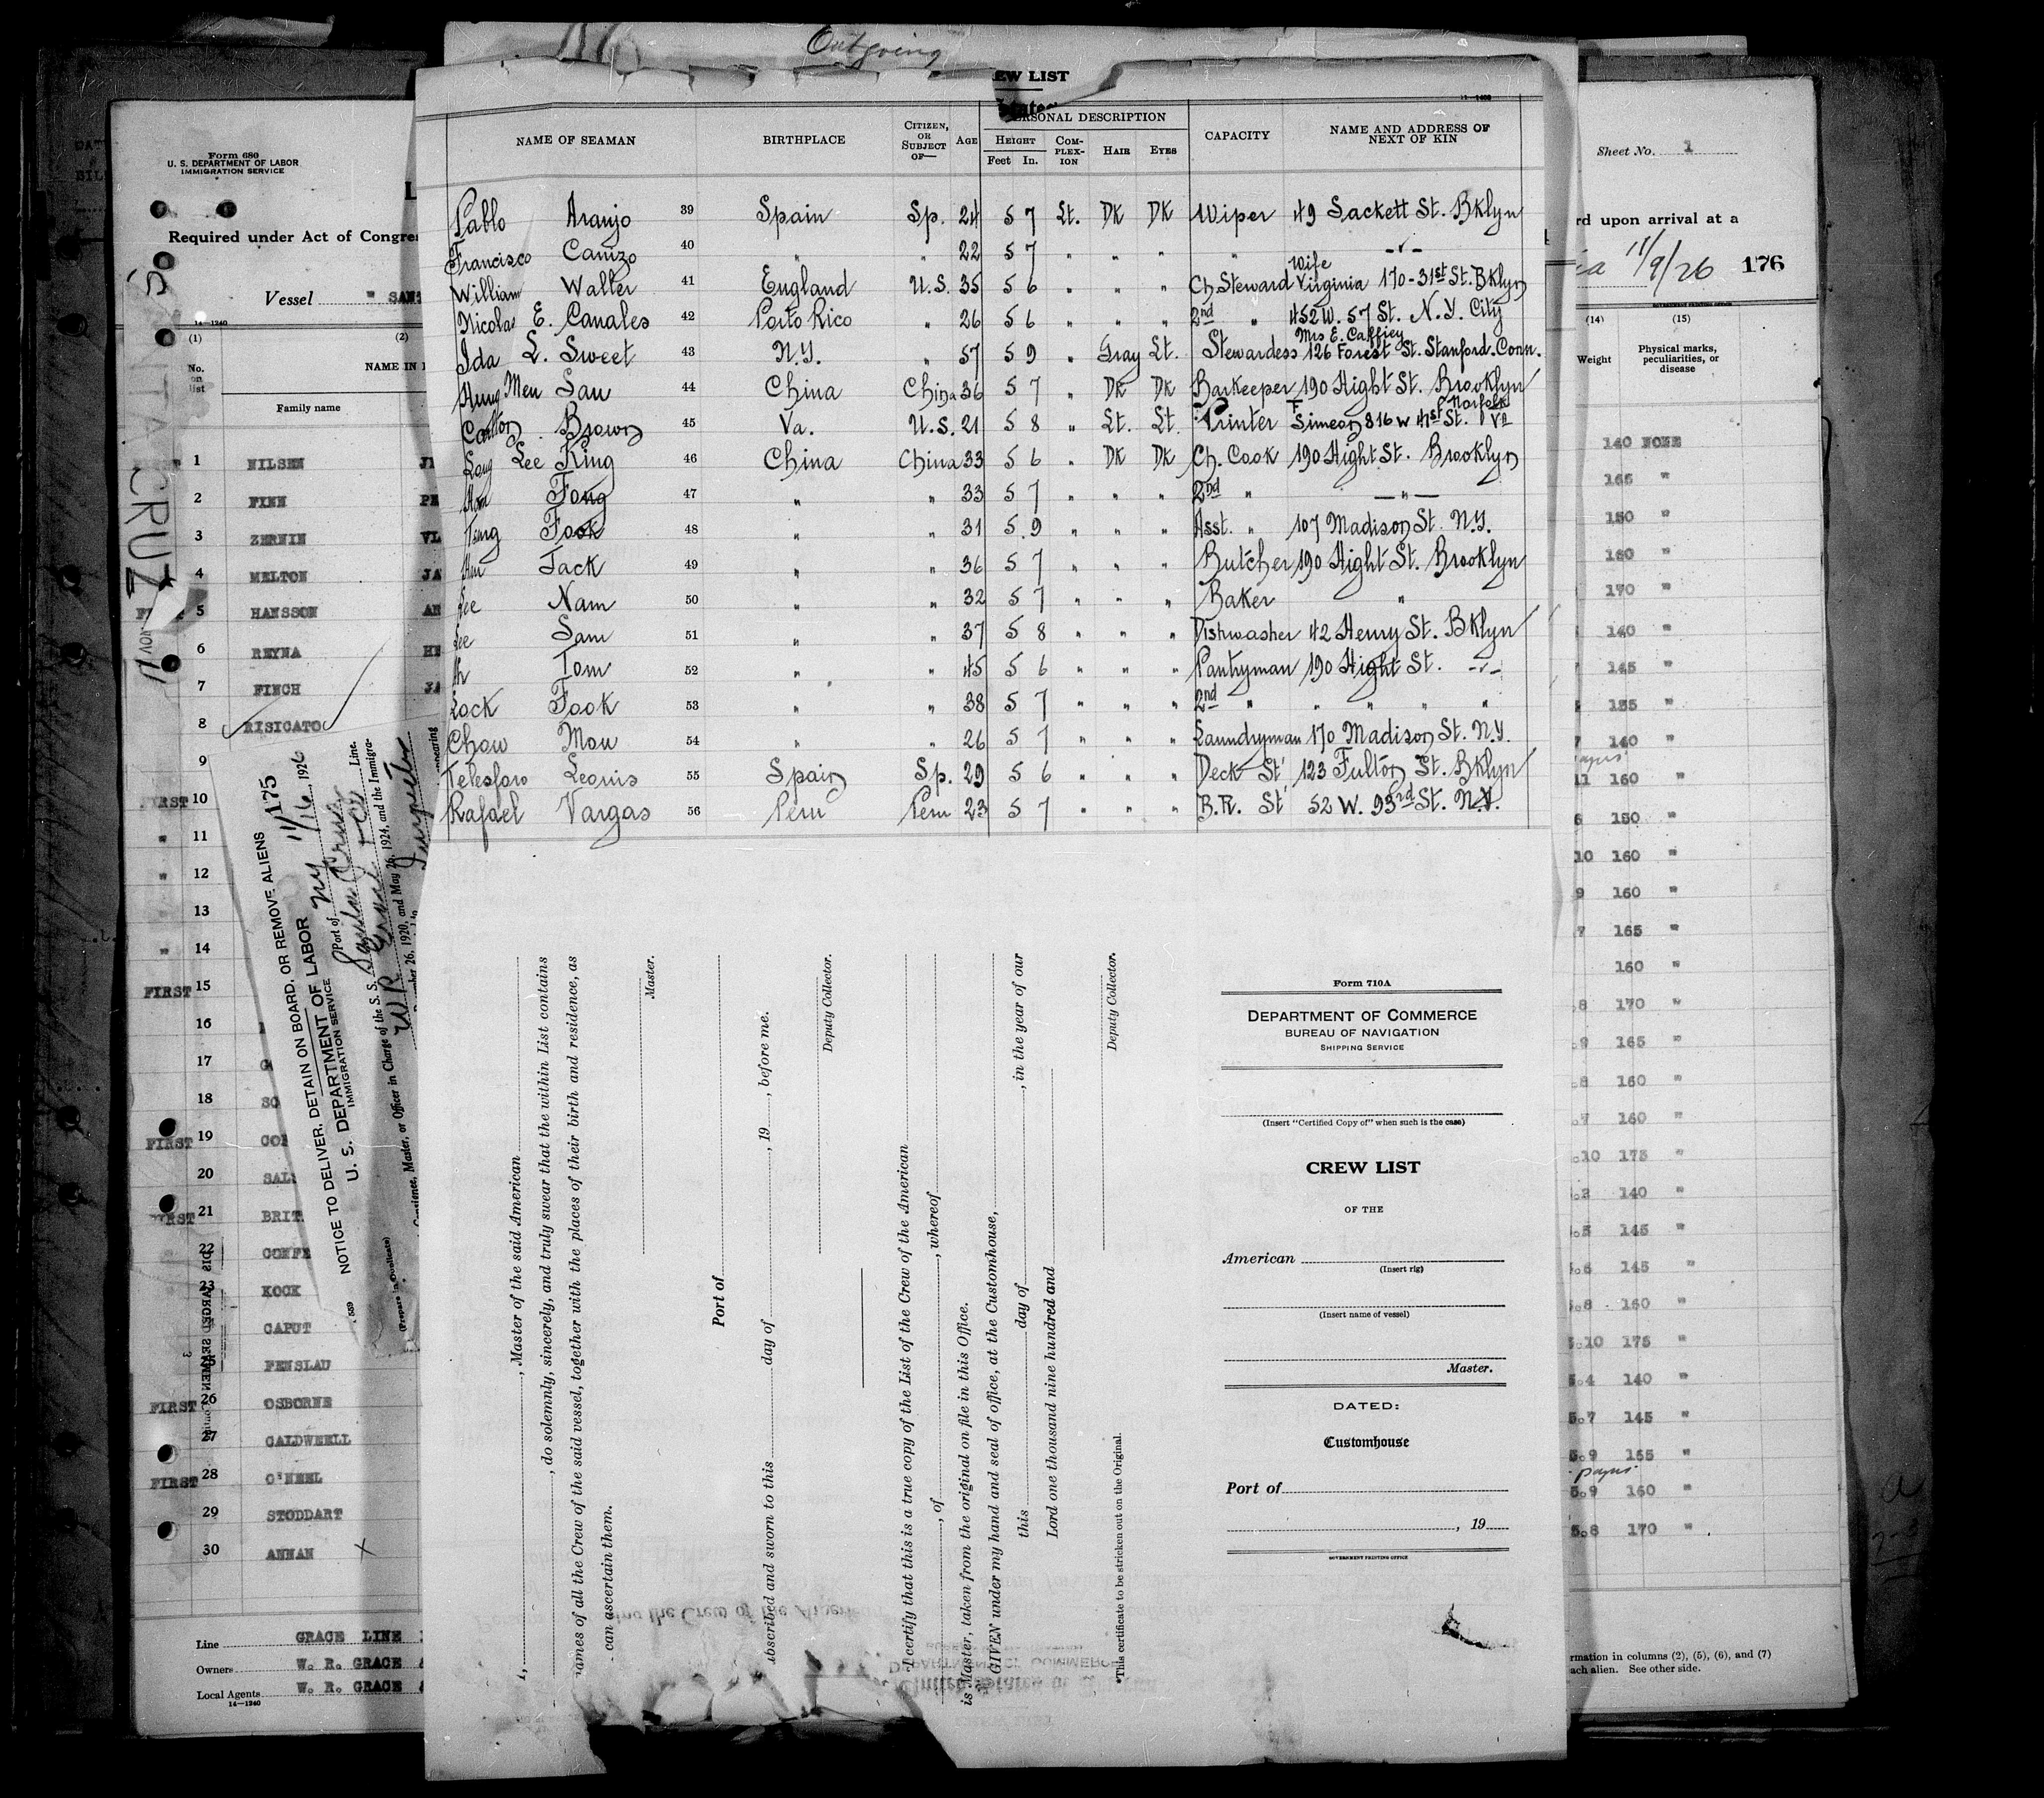 Outgoing
EW LIST
States
NAME OF SEAMAN BIRTHPLACE CITIZEN, OR SUBJECT OF— AGE PERSONAL DESCRIPTION CAPACITY NAME AND ADDRESS OF NEXT OF KIN
HEIGHT COM-PLEX-ION HAIR EYES
Feet In.
Pablo Aranjo 39 Spain Sp. 24 5 7 Lt. DK DK Wiper 49 Sackett St. Bklyn
Francisco Canizo 40 " " 22 5 7 " " " " -"-
Wife
William Walter 41 England U.S. 35 5 6 " " " Ch. Steward Virginia 170-31st St. Bklyn
Nicolas E. Canales 42 Porto Rico " 26 5 6 " " " 2nd " 452 W. 57 St. N.Y. City
Mrs E. Caffiey
Ida L. Sweet 43 N.Y. " 57 5 9 " Gray Lt. Stewardess 126 Forest St. Stanford. Conn.
Hung Men San 44 China China 36 5 7 " DK DK Barkeeper 190 Hight St. Brooklyn
Carlton Brown 45 Va. U.S. 21 5 8 " Lt. Lt. Printer F Simeon 816 W 41st St. Norfolk Va
Long Lee King 46 China China 33 5 6 " DK DK Ch. Cook 190 Hight St. Brooklyn
Hom Fong 47 " " 33 5 7 " " " 2nd " —"—
Tsing Fook 48 " " 31 5 9 " " " Asst. " 107 Madison St. N.Y.
Jack 49 " " 36 5 7 " " " Butcher 190 Hight St. Brooklyn
Lee Nam 50 " " 32 5 7 " " " Baker "
Lee Sam 51 " " 37 5 8 " " " Dishwasher 42 Henry St. Bklyn
Tom 52 " " 45 5 6 " " " Pantryman 190 Hight St. -"-
Lock Fook 53 " " 38 5 7 " " " 2nd " " " " "
Chow Mou 54 " " 26 5 7 " " " Laundryman 170 Madison St. N.Y.
Telesforo Leonis 55 Spain Sp. 29 5 6 " " " Deck St' 123 Fulton St. Bklyn
Rafael Vargas 56 Peru Peru 23 5 7 " " " B.R. St' 52 W. 93rd St. N.Y.
Form 710A
DEPARTMENT OF COMMERCE
BUREAU OF NAVIGATION
SHIPPING SERVICE
(Insert "Certified Copy of" when such is the case)
CREW LIST
OF THE
American
(Insert rig)
(Insert name of vessel)
Master.
DATED:
Customhouse
Port of
, 19
GOVERNMENT PRINTING OFFICE
, Master of the said American
, do solemnly, sincerely, and truly swear that the within List contains
names of all the Crew of the said vessel, together with the places of their birth and residence, as
can ascertain them.
Master.
Port of
bscribed and sworn to this day of , 19 , before me.
Deputy Collector.
I certify that this is a true copy of the List of the Crew of the American
, of , whereof
is Master, taken from the original on file in this Office.
GIVEN under my hand and seal of office, at the Customhouse,
this day of , in the year of our
Lord one thousand nine hundred and
Deputy Collector.
*This certificate to be stricken out on the Original.
Form 680
U. S. DEPARTMENT OF LABOR
IMMIGRATION SERVICE
Required under Act of Congre
Vessel " SAN
14—1240
(1) (2)
No. on list
NAME IN
Family name
1 NILSEN
2 FINN PE
3 ZERNIN VL
4 MELTON JA
5 HANSSON AN
6 REYNA HE
7 FINCH JA
8 RISICATO
9
FIRST 10
" 11
" 12
13
" 14
FIRST 15
16
17
18 SO
FIRST 19 CO
20 SAL
FIRST 21 BRIT
22 CONFE
23 KOCK
CAPUT
25 FENSLAU
FIRST 26 OSBORNE
27 CALDWELL
FIRST 28 O'NEEL
29 STODDART
30 ANNAN X
Line GRACE LINE
Owners W. R. GRACE &
Local Agents W. R. GRACE &
14—1240
SANTA CRUZ
NOV
11/175
NOTICE TO DELIVER, DETAIN ON BOARD, OR REMOVE ALIENS
U. S. DEPARTMENT OF LABOR
IMMIGRATION SERVICE
Port of NY 11/16 1926
Officer in Charge of the S. S. Santa Cruz Line.
W R Grace & Co
26, 1920, and May 26, 1924, and the Immigra-
Inspector
(Prepare in Duplicate)
539
Sheet No. 1
rd upon arrival at a
11/9/26 176
GOVERNMENT PRINTING OFFICE
(14) (15)
Weight Physical marks, peculiarities, or disease
140 NONE
165 "
150 "
160 "
170 "
140 "
145 "
155 "
140 "
11 160 "
150 "
10 160 "
9 160 "
7 165 "
160 "
8 170 "
9 165 "
8 160 "
7 160 "
10 175 "
140 "
5 145 "
6 145 "
8 160 "
5.10 175 "
5.4 140 "
5.7 145 "
5.9 155 "
5.9 160 "
5.8 170 "
rmation in columns (2), (5), (6), and (7)
ach alien. See other side.